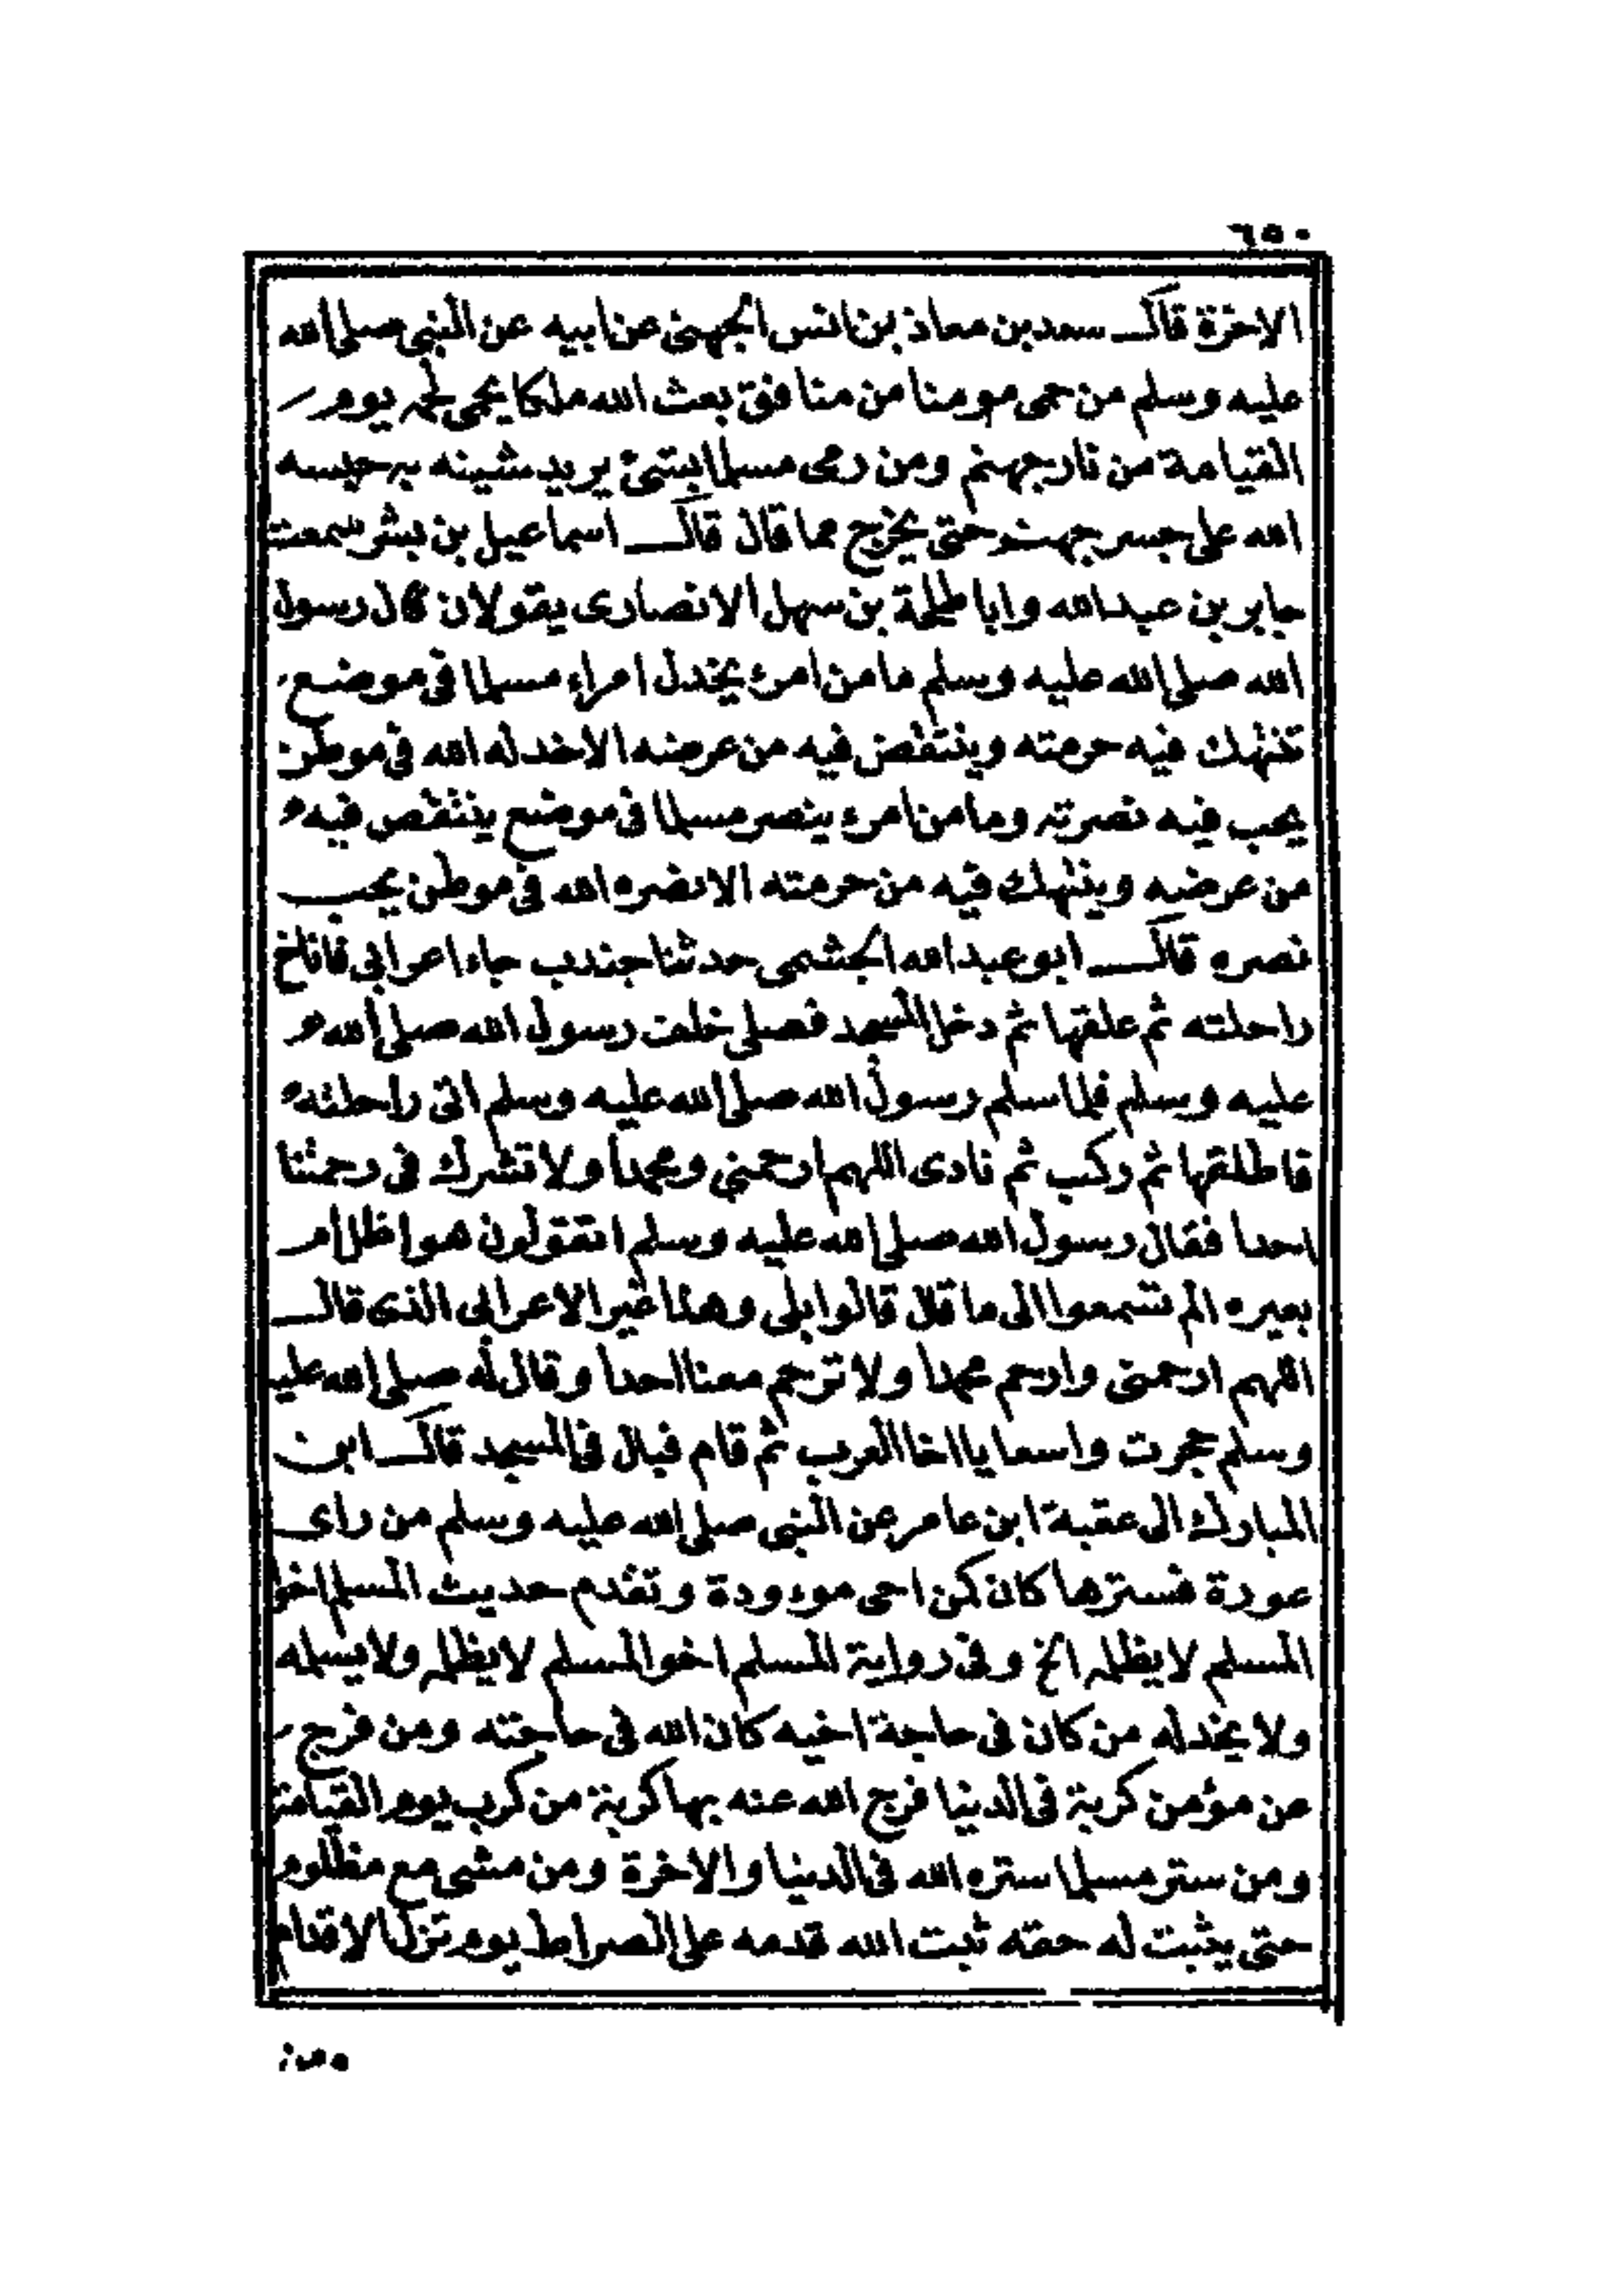 ٦٥٠
الاخرة قال سعد بن معاذ بن انس الجهنى عن ابيه عن النبى صلى الله
عليه وسلم من حمى مومنا من منافق بعث الله ملكا يحمى لحمه يوم
القيامة من نار جهنم ومن رمى مسلما بشئ يريد شينه به حبسه
الله على جسر جهنم حتى يخرج مما قال قال اسماعيل بن بشر سمعت
جابر بن عبد الله وابا طلحة بن سهل الانصارى يقولان قال رسول
الله صلى الله عليه وسلم ما من امرء يخذل امراء مسلما فى موضع
تنتهك فيه حرمته وينتقص فيه من عرضه الاخذله الله فى موطن
يحب فيه نصرته وما من امرء ينصر مسلما فى موضع ينتقص فيه
من عرضه وينتهك فيه من حرمته الا نصره الله فى موطن يحب
نصره قال ابو عبد الله الجشمى حدثنا جندب جاء اعرابى فاناخ
راحلته ثم علقها ثم دخل المسجد فصلى خلف رسول الله صلى الله
عليه وسلم فلما سلم رسول الله صلى الله عليه وسلم اتى راحلته
فاطلقها ثم ركب ثم نادى اللهم ارحمنى ومحمدا ولا تشرك فى رحمتنا
احدا فقال رسول الله صلى الله عليه وسلم اتقولون هو اظل ام
بعيره الم تسمعوا الى ما قال قالوا بلى وهذا غير الاعرابى الذى قال
اللهم ارحمنى وارحم محمدا ولا ترحم معنا احدا وقال له صلى الله عليه
وسلم حجرت واسعا يا اخا العرب ثم قام فبال فى المسجد قال ابن
المبارك الى عقبة ابن عامر عن النبى صلى الله عليه وسلم من راى
عورة فسترها كان كمن احى موءودة وتقدم حديث المسلم اخو
المسلم لا يظلمه الخ وفى رواية المسلم اخو المسلم لا يظلمه ولا يسلمه
ولا يخذله من كان فى حاجة اخيه كان الله فى حاجته ومن فرج
عن مؤمن كربة فى الدنيا فرج الله عنه بها كربة من كرب يوم القيامة
ومن ستر مسلما ستره الله فى الدنيا والاخرة ومن مشى مع مظلوم
حتى يثبت له حقه ثبت الله قدمه على الصراط يوم تزل الاقدام
ومن